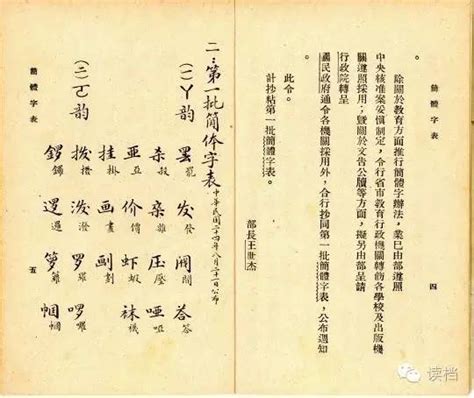 簡體字表
四
除關於教育方面推行簡體字辦法，業已由部遵照
中央核准案妥慎制定，令行省市教育行政機關轉飭各學校及出版機
關遵照採用；暨關於文告公牘等方面，擬另由部呈請
行政院轉呈
國民政府通令各機關採用外，合行抄同第一批簡體字表，公布週知
。
此令。
計抄粘第一批簡體字表。
部長王世杰
二、第一批簡体字表 中華民國二十四年八月二十一日公布
(一)ㄚ韵 罢罷 发發 阀閥 荅答
杀殺 杂雜 压壓 哑啞
亚亞 价價 虾蝦 袜襪
挂掛 画畫 劃
(二)ㄛ韵 拨撥 泼潑 罗羅 啰囉
锣鑼 逻邏 箩籮 帼幗
簡體字表
五
读档